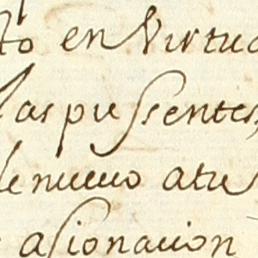 to en Virtud
las pressentes,
de nuevo a tu
asionacion